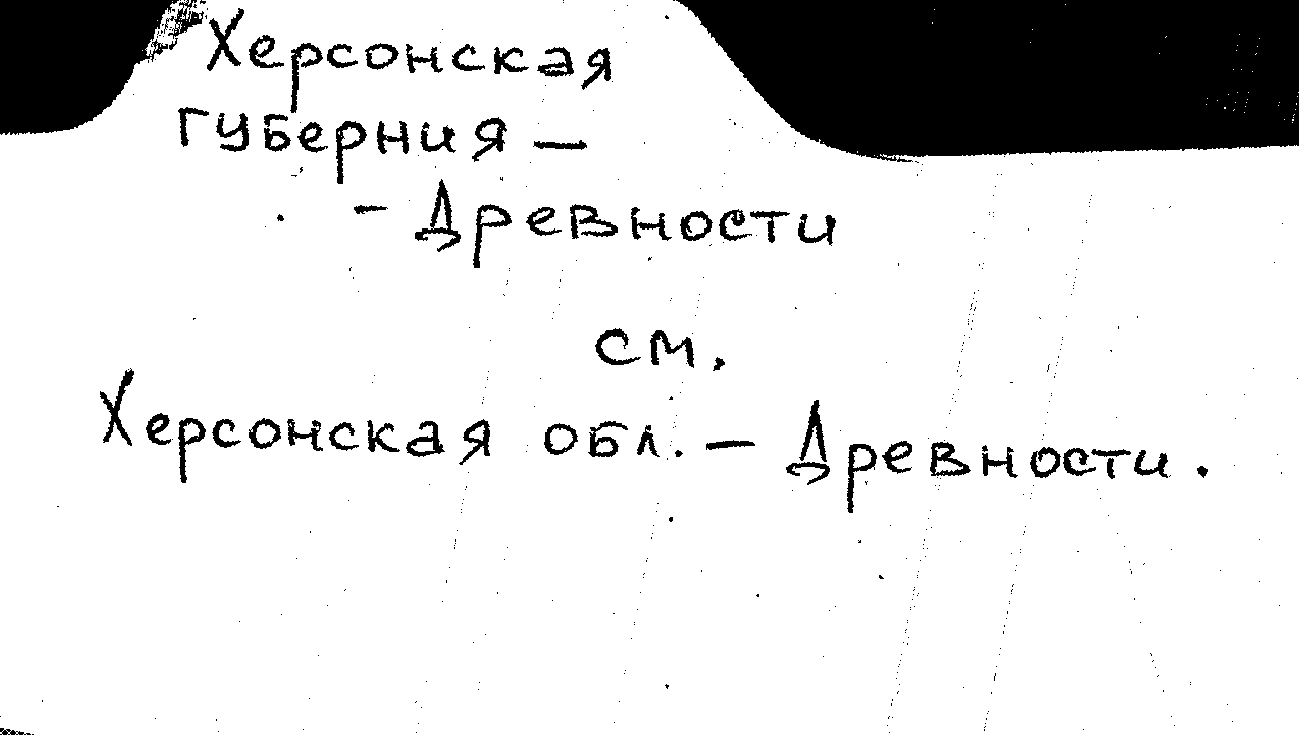 Херсонская
губерния —
- Древности
см.
Херсонская обл. — Древности.